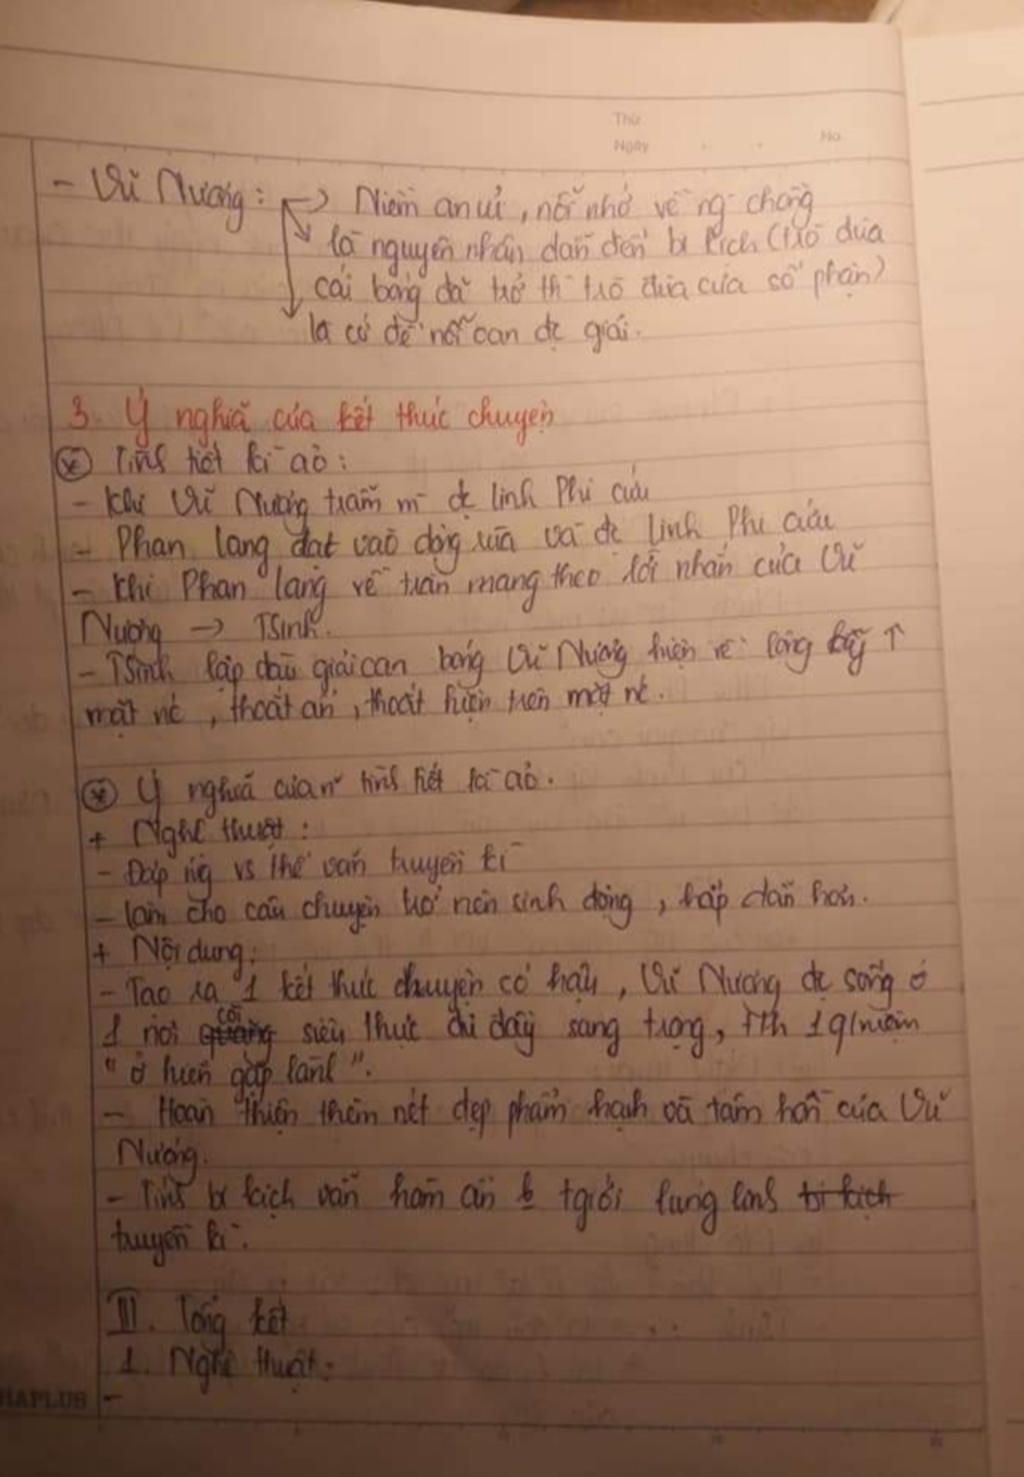 Thứ
Ngày . . No.
- Vũ Nương: → Niềm an ủi, nỗi nhớ về ng` chồng
là nguyên nhân dẫn đến bi kịch (trò đùa
cái bóng đã trở th` trò đùa của số phận)
là cớ để nỗi oan đc giải.
3. Ý nghĩa của kết thúc chuyện
* Tình tiết kì ảo:
- Khi Vũ Nương trẫm m` đc Linh Phi cứu
- Phan Lang đạt vào động rùa và đc Linh Phi cứu
- Khi Phan Lang về trần mang theo lời nhắn của Vũ
Nương → TSinh.
- TSinh lập đàn giải oan bóng Vũ Nương hiện về lộng lẫy ↑
mặt nc, thoắt ẩn, thoắt hiện trên mặt nc.
* Ý nghĩa của n~ tình tiết kì ảo.
+ Nghệ thuật:
- Đáp ứg vs thể văn truyền kì
- làm cho câu chuyện trở nên sinh động, hấp dẫn hơn.
+ Nội dung:
- Tạo ra 1 kết thúc chuyện có hậu, Vũ Nương đc sống ở
1 nơi cõi siêu thực đủ đầy sang trọng, 1 q/niệm
"ở hiền gặp lành".
- Hoàn thiện thêm nét đẹp phẩm hạnh và tâm hồn của Vũ
Nương.
- Tính bi kịch vẫn hàm ẩn tgiới lung linh bi kịch
truyền kì.
III. Tổng kết
1. Nghệ thuật:
HAPLUS -